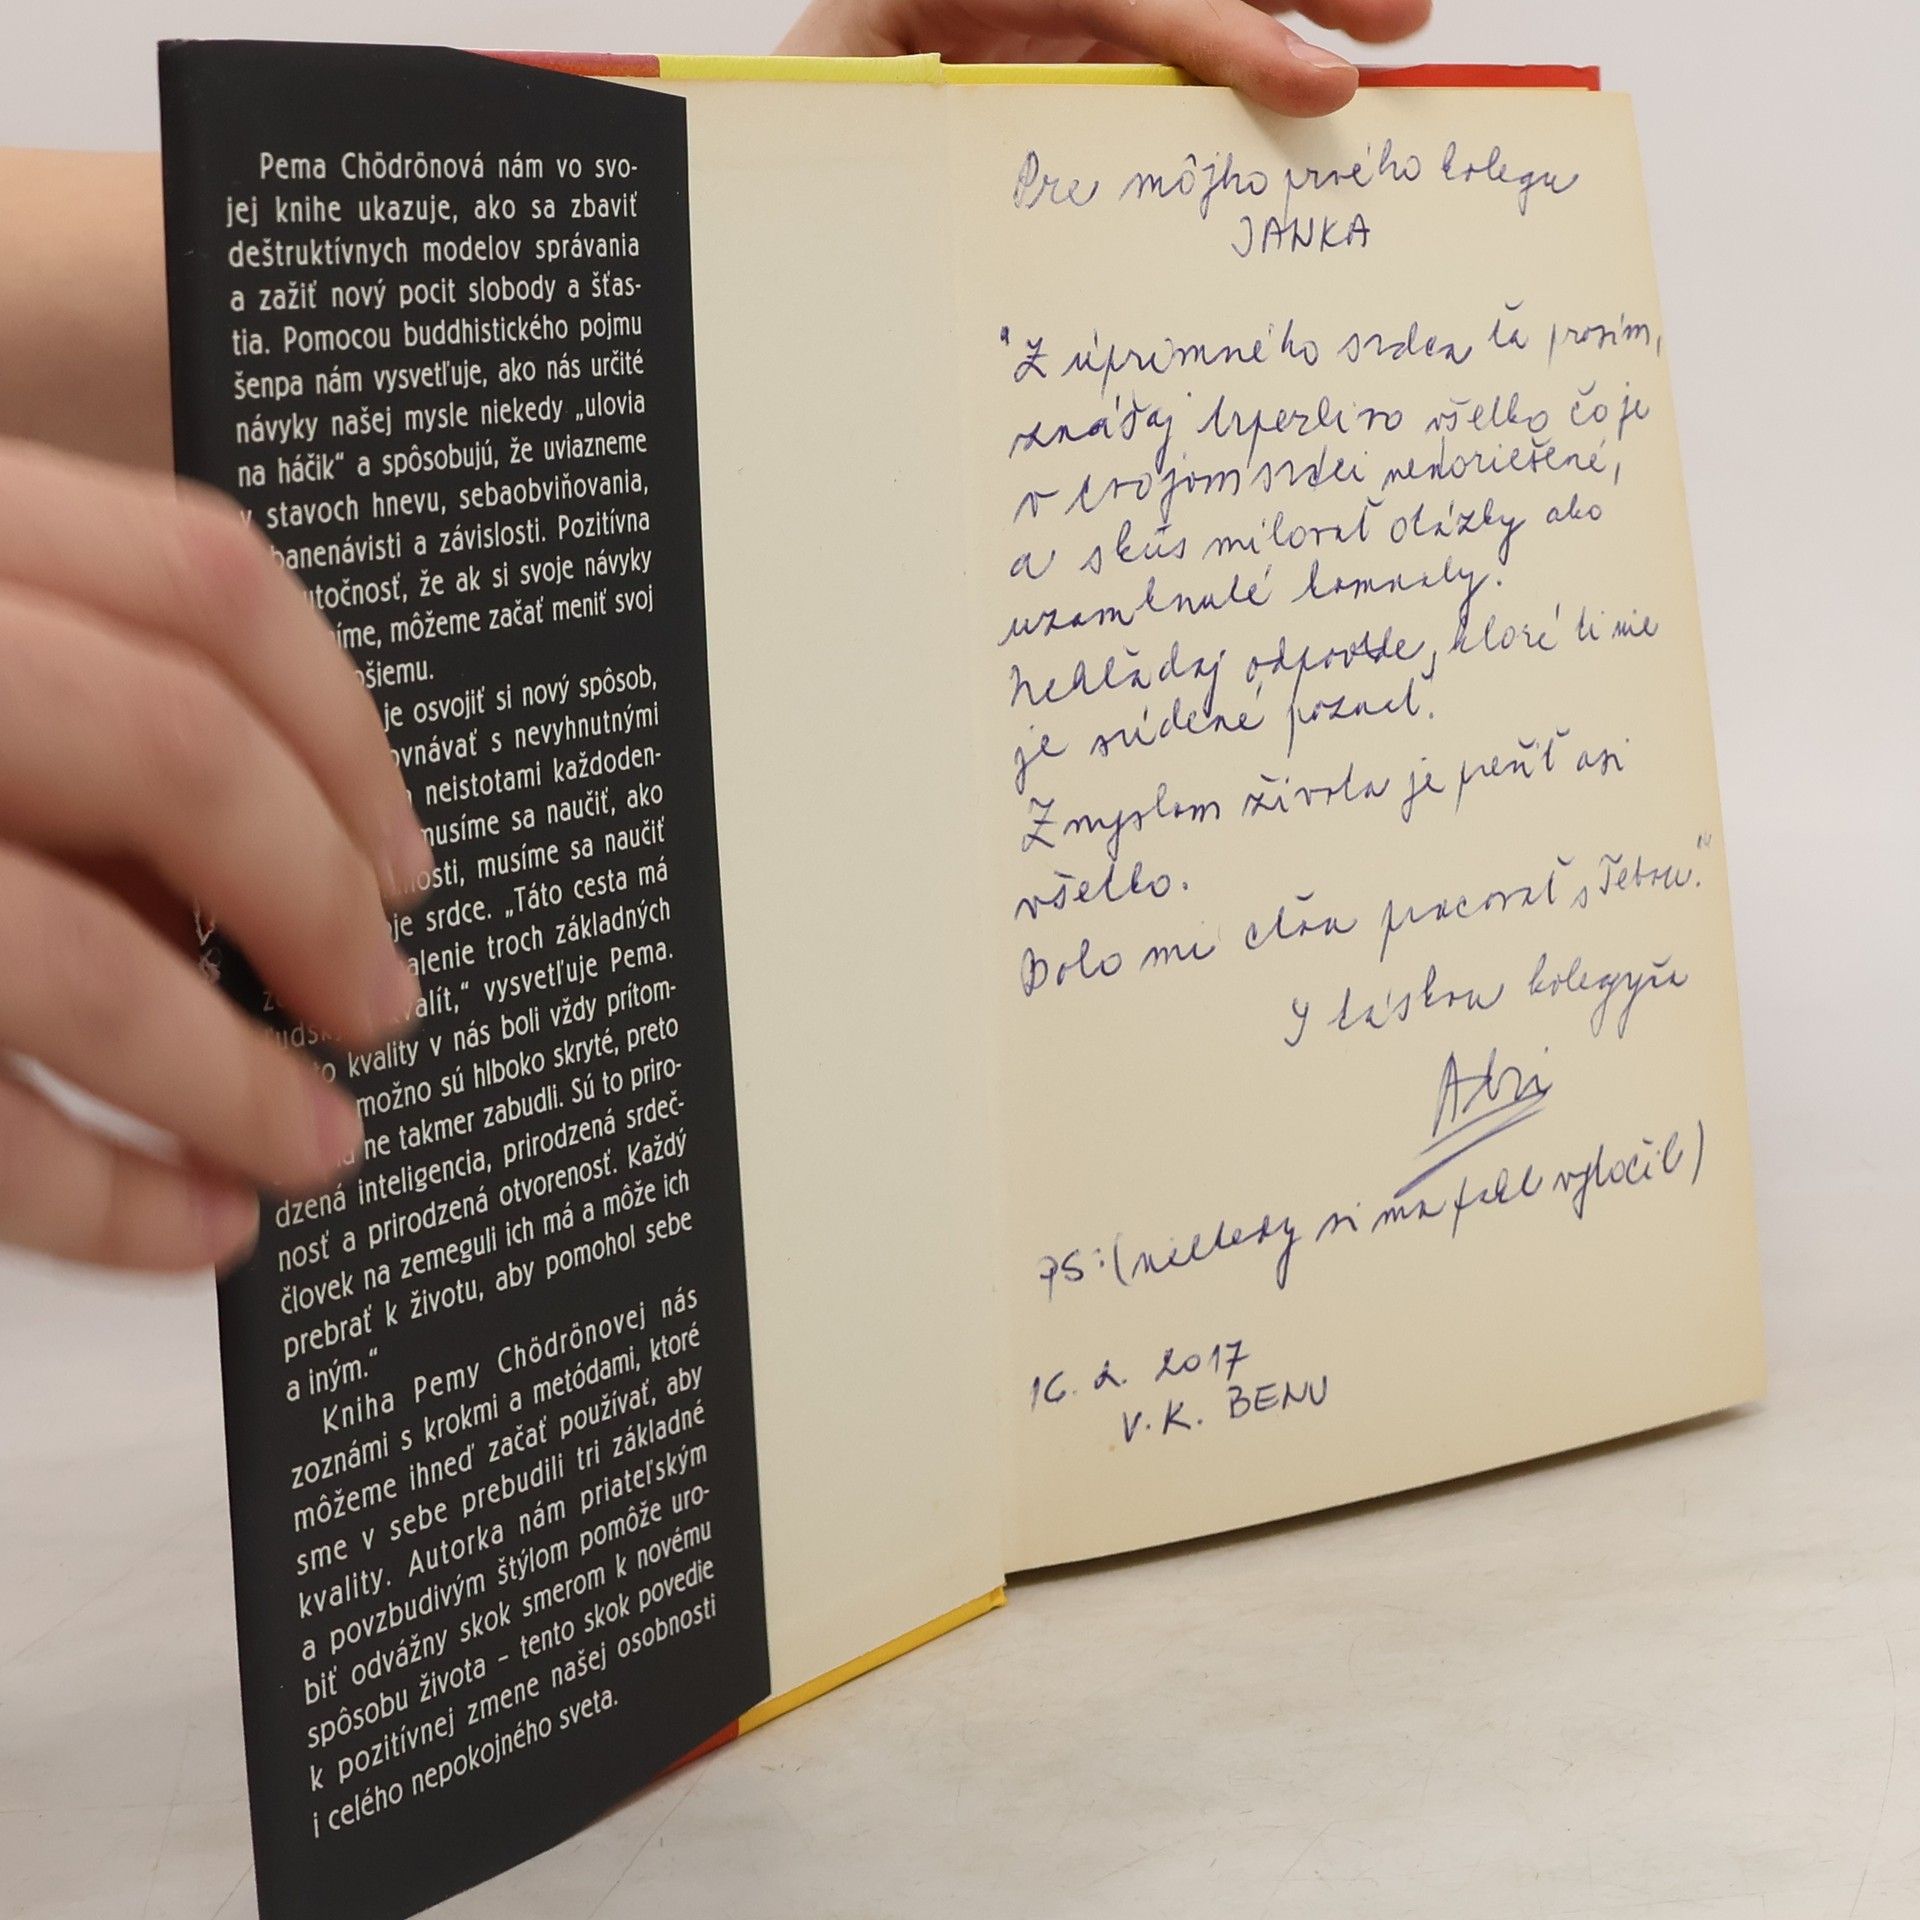 Pema Chödrönová nám vo svo-
jej knihe ukazuje, ako sa zbaviť
deštruktívnych modelov správania
a zažiť nový pocit slobody a šťas-
tia. Pomocou buddhistického pojmu
šenpa nám vysvetľuje, ako nás určité
návyky našej mysle niekedy „ulovia
na háčik“ a spôsobujú, že uviazneme
v stavoch hnevu, sebaobviňovania,
banenávisti a závislosti. Pozitívna
utočnosť, že ak si svoje návyky
íme, môžeme začať meniť svoj
pšiemu.
je osvojiť si nový spôsob,
ovnávať s nevyhnutnými
neistotami každoden-
musíme sa naučiť, ako
nosti, musíme sa naučiť
je srdce. „Táto cesta má
alenie troch základných
valít,“ vysvetľuje Pema.
to kvality v nás boli vždy prítom-
možno sú hlboko skryté, preto
ne takmer zabudli. Sú to priro-
dzená inteligencia, prirodzená srdeč-
nosť a prirodzená otvorenosť. Každý
človek na zemeguli ich má a môže ich
prebrať k životu, aby pomohol sebe
a iným.“
Kniha Pemy Chödrönovej nás
zoznámi s krokmi a metódami, ktoré
môžeme ihneď začať používať, aby
sme v sebe prebudili tri základné
kvality. Autorka nám priateľským
a povzbudivým štýlom pomôže uro-
biť odvážny skok smerom k novému
spôsobu života – tento skok povedie
k pozitívnej zmene našej osobnosti
i celého nepokojného sveta.
Pre môjho prvého kolegu
JANKA
"Z úprimného srdca ťa prosím,
znášaj trpezlivo všetko čo je
v tvojom srdci nedoriešené,
a skús milovať otázky ako
uzamknuté komnaty.
Nehľadaj odpovede, ktoré ti nie
je súdené poznať.
Zmyslom života je prežiť asi
všetko.
Bolo mi cťou pracovať s Tebou."
S láskou kolegyňa
PS: (niekedy si ma fakt vytočil)
16. 2. 2017
V. K. BENU